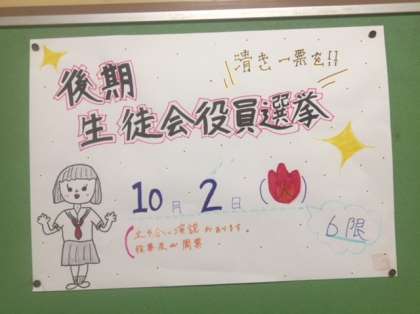 清き一票を!!
後期
生徒会役員選挙
10月2日(火)
6限
立ち会い演説があります。